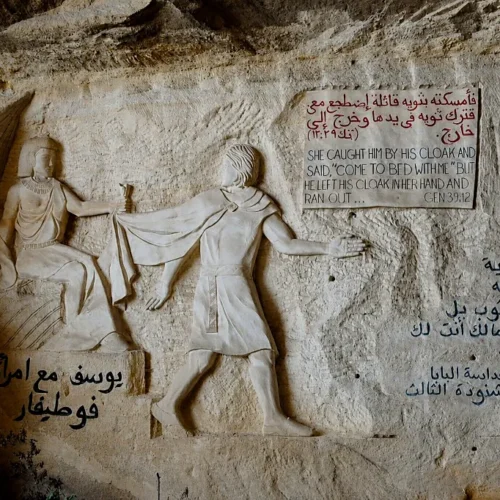 فأمسكته بثوبه قائلة إضطجع معى
فترك ثوبه فى يدها وخرج إلى
خارج. (تك ٣٩: ١٢)
SHE CAUGHT HIM BY HIS CLOAK AND
SAID, "COME TO BED WITH ME" BUT
HE LEFT HIS CLOAK IN HER HAND AND
RAN OUT ... GEN 39:12
يوسف مع
فوطيفار
بل
أنت لك
قداسة البابا
شنودة الثالث